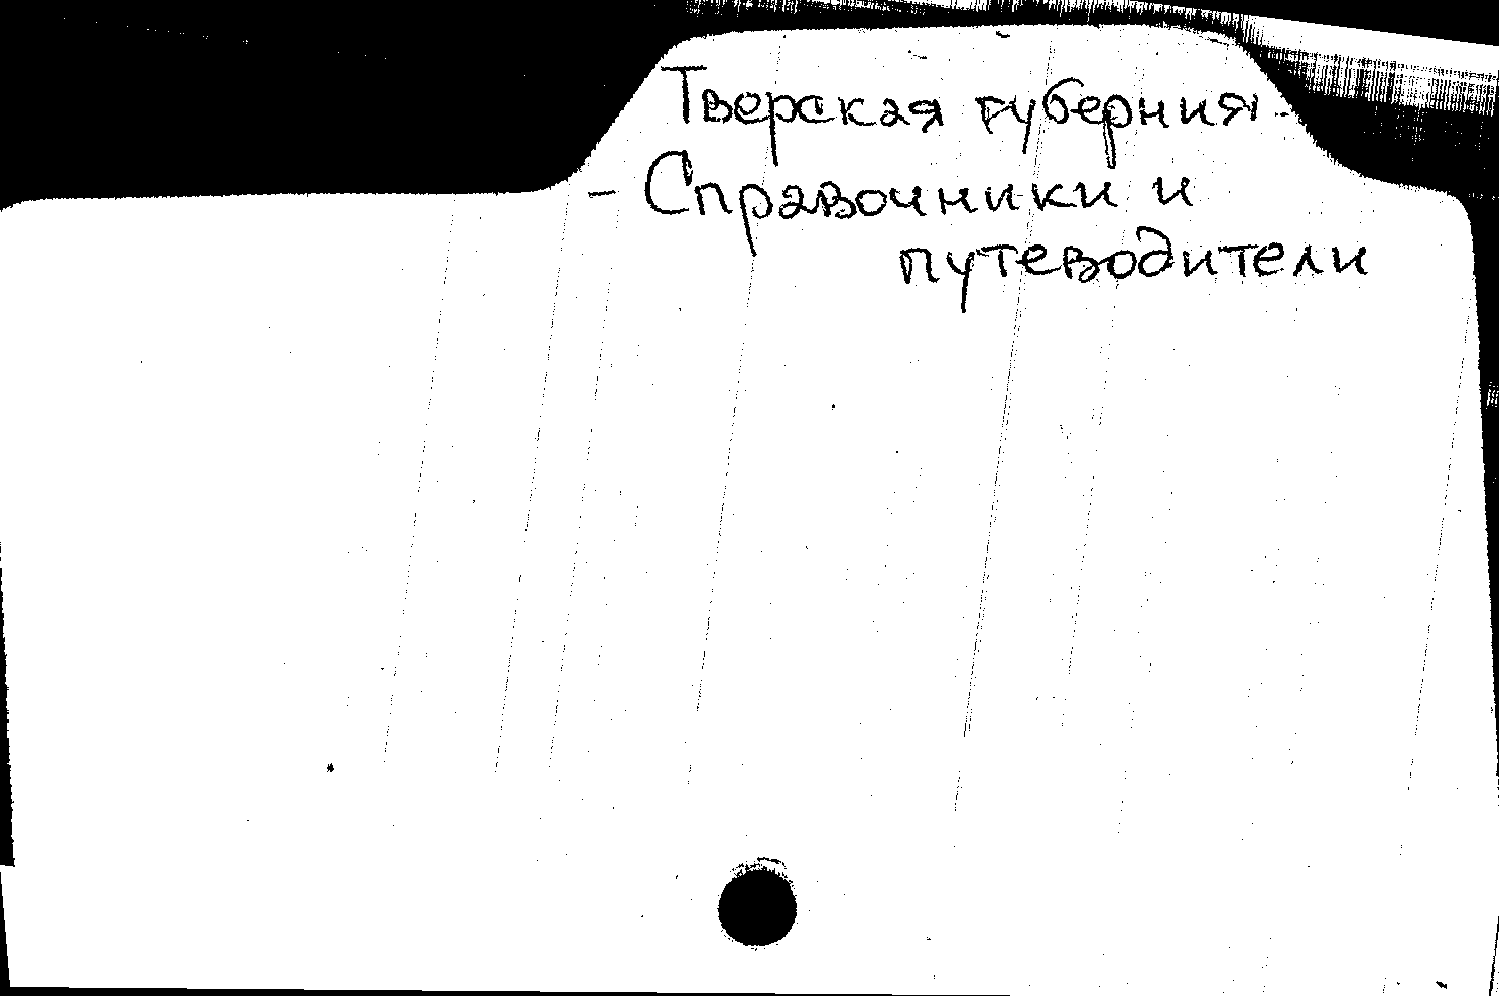 Тверская губерния -
- Справочники и
путеводители